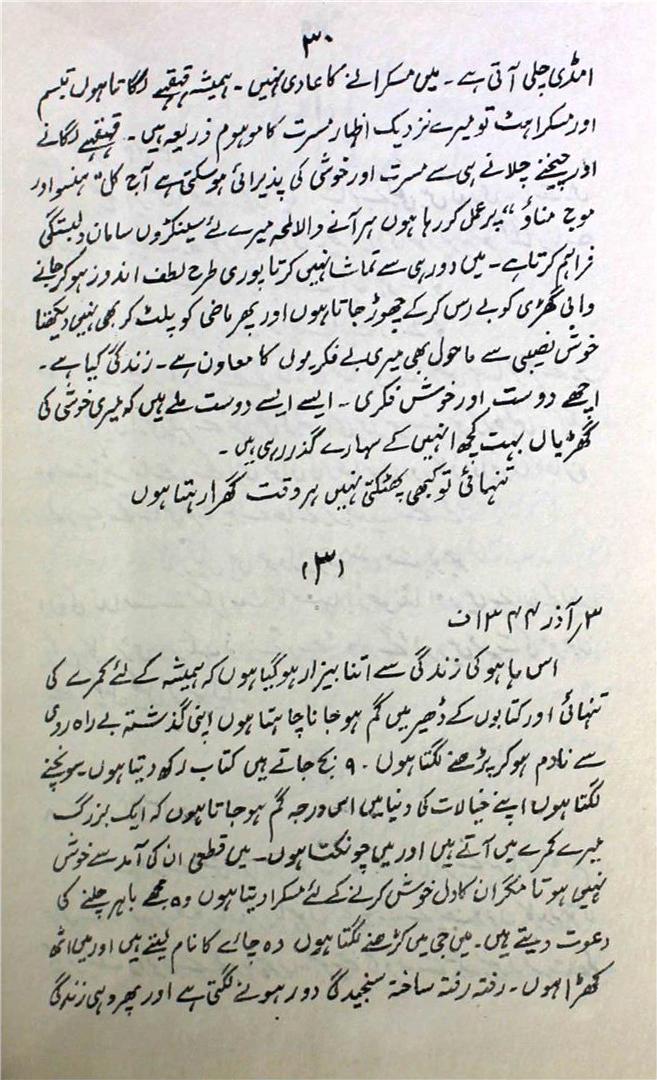 ۳۰
امڈی چلی آتی ہے ۔ میں مسکرانے کا عادی نہیں ۔ ہمیشہ قہقہے لگاتا ہوں تبسم
اور مسکراہٹ تو میرے نزدیک اظہار مسرت کا موہوم ذریعہ ہیں ۔ قہقہے لگانے
اور چیخنے چلانے ہی سے مسرت اور خوشی کی پذیرائی ہو سکتی ہے آج کل " ہنسو اور
موج مناؤ “ پر عمل کر رہا ہوں ہر آنے والا لمحہ میرے لئے سینکڑوں سامان دلبستگی
فراہم کرتا ہے ۔ میں دور ہی سے تماشا نہیں کرتا پوری طرح لطف اندوز ہو کر جانے
والی گھڑی کو بے رس کرکے چھوڑ جاتا ہوں اور پھر ماضی کو پلٹ کر بھی نہیں دیکھتا
خوش نصیبی سے ماحول بھی میری بے فکریوں کا معاون ہے ۔ زندگی کیا ہے ۔
اچھے دوست اور خوش فکری ۔ ایسے ایسے دوست ملے ہیں کہ میری خوشی کی
گھڑیاں بہت کچھ انہیں کے سہارے گذر رہی ہیں ۔
تنہائی تو کبھی پھٹکتی نہیں ہر وقت گھرا رہتا ہوں
(۳)
۳؍ آذر ۱۳۴۴ف
اس ہا ہو کی زندگی سے اتنا بیزار ہو گیا ہوں کہ ہمیشہ کے لئے کمرے کی
تنہائی اور کتابوں کے ڈھیر میں گم ہو جانا چاہتا ہوں اپنی گذشتہ بے راہ روی
سے نادم ہو کر پڑھنے لگتا ہوں ۔ ۹ بج جاتے ہیں کتاب رکھ دیتا ہوں ۔ سونچنے
لگتا ہوں اپنے خیالات کی دنیا میں اس درجہ گم ہو جاتا ہوں کہ ایک بزرگ
میرے کمرے میں آتے ہیں اور میں چونکتا ہوں ۔ میں قطعی ان کی آمد سے خوش
نہیں ہوتا مگر ان کا دل خوش کرنے کے لئے مسکرا دیتا ہوں وہ مجھے باہر چلنے کی
دعوت دیتے ہیں ۔ میں جی میں کڑھنے لگتا ہوں وہ چائے کا نام لیتے ہیں اور میں اٹھ
کھڑا ہوں ۔ رفتہ رفتہ ساختہ سنجیدگی دور ہونے لگتی ہے اور پھر وہی زندگی